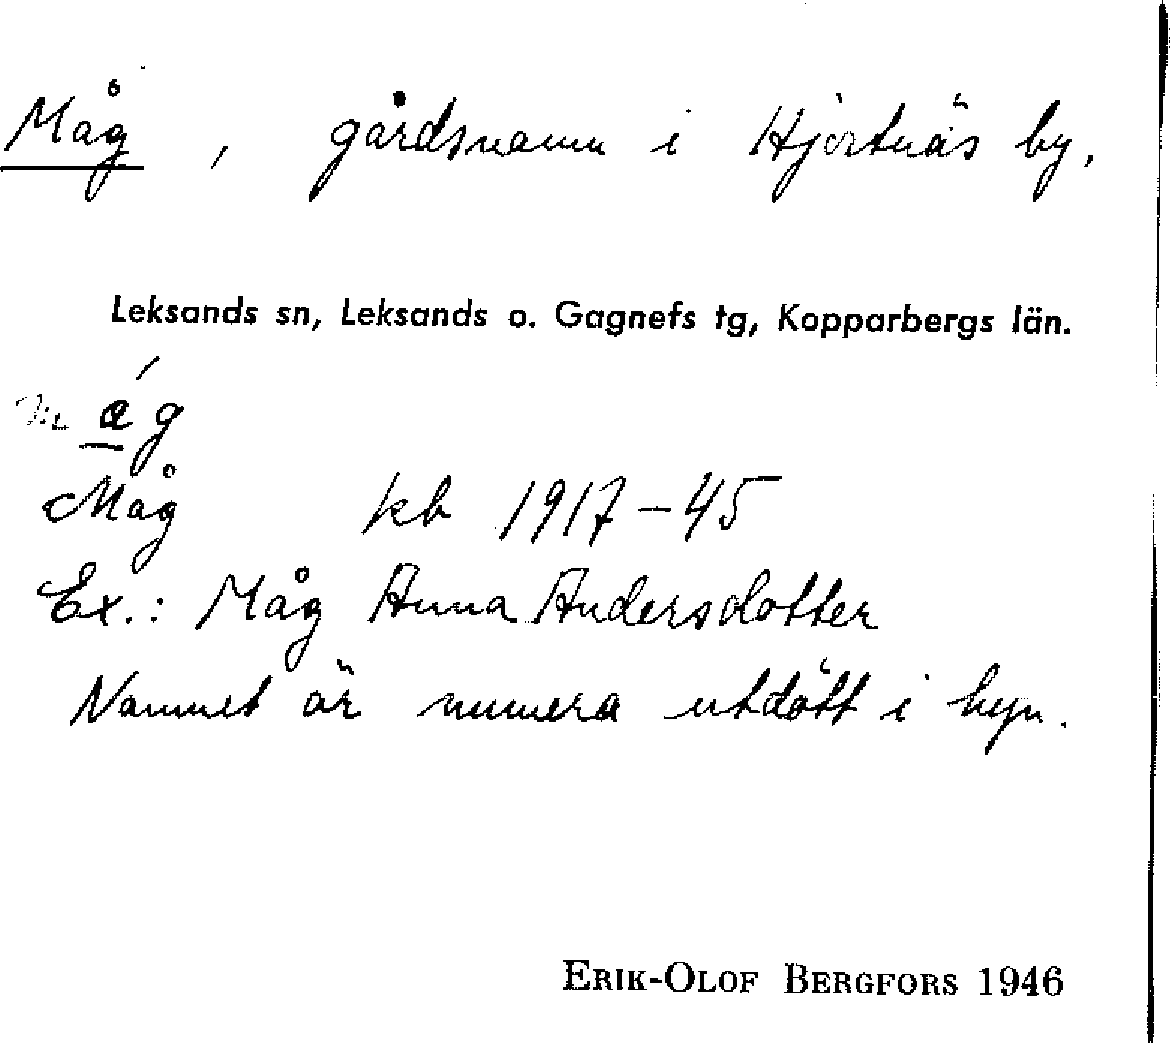 Måg , gårdsnamn i Hjortnäs by,
Leksands sn, Leksands o. Gagnefs tg, Kopparbergs län.
Måg kb 1917-45
Ex.: Måg Anna Andersdotter
Namnet är numera utdött i byn.
ERIK-OLOF BERGFORS 1946